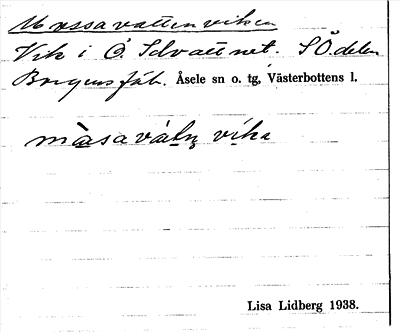 Mossavattenviken
Vik i Ö. Selvattnet. SÖ.delen
Borgensjöb. Åsele sn o. tg, Västerbottens l.
màsavátn̥ víka
Lisa Lidberg 1938.